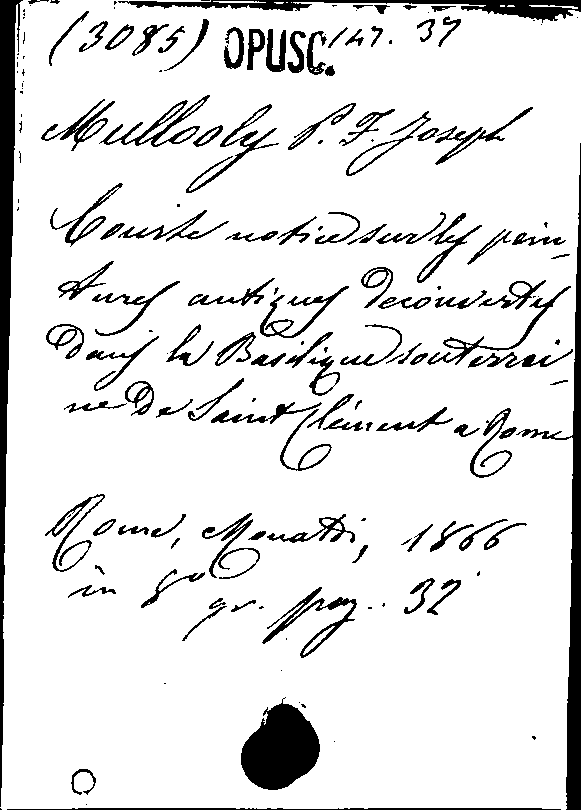 (3085) OPUSC. 147. 37
Mullooly P. F. Joseph
Courte notice sur les pein-
tures antiques decouvertes
dans la Basilique souterrai-
ne de Saint Clément a Rome
Rome, Monaldi, 1866
in 8º gr. pag. 32